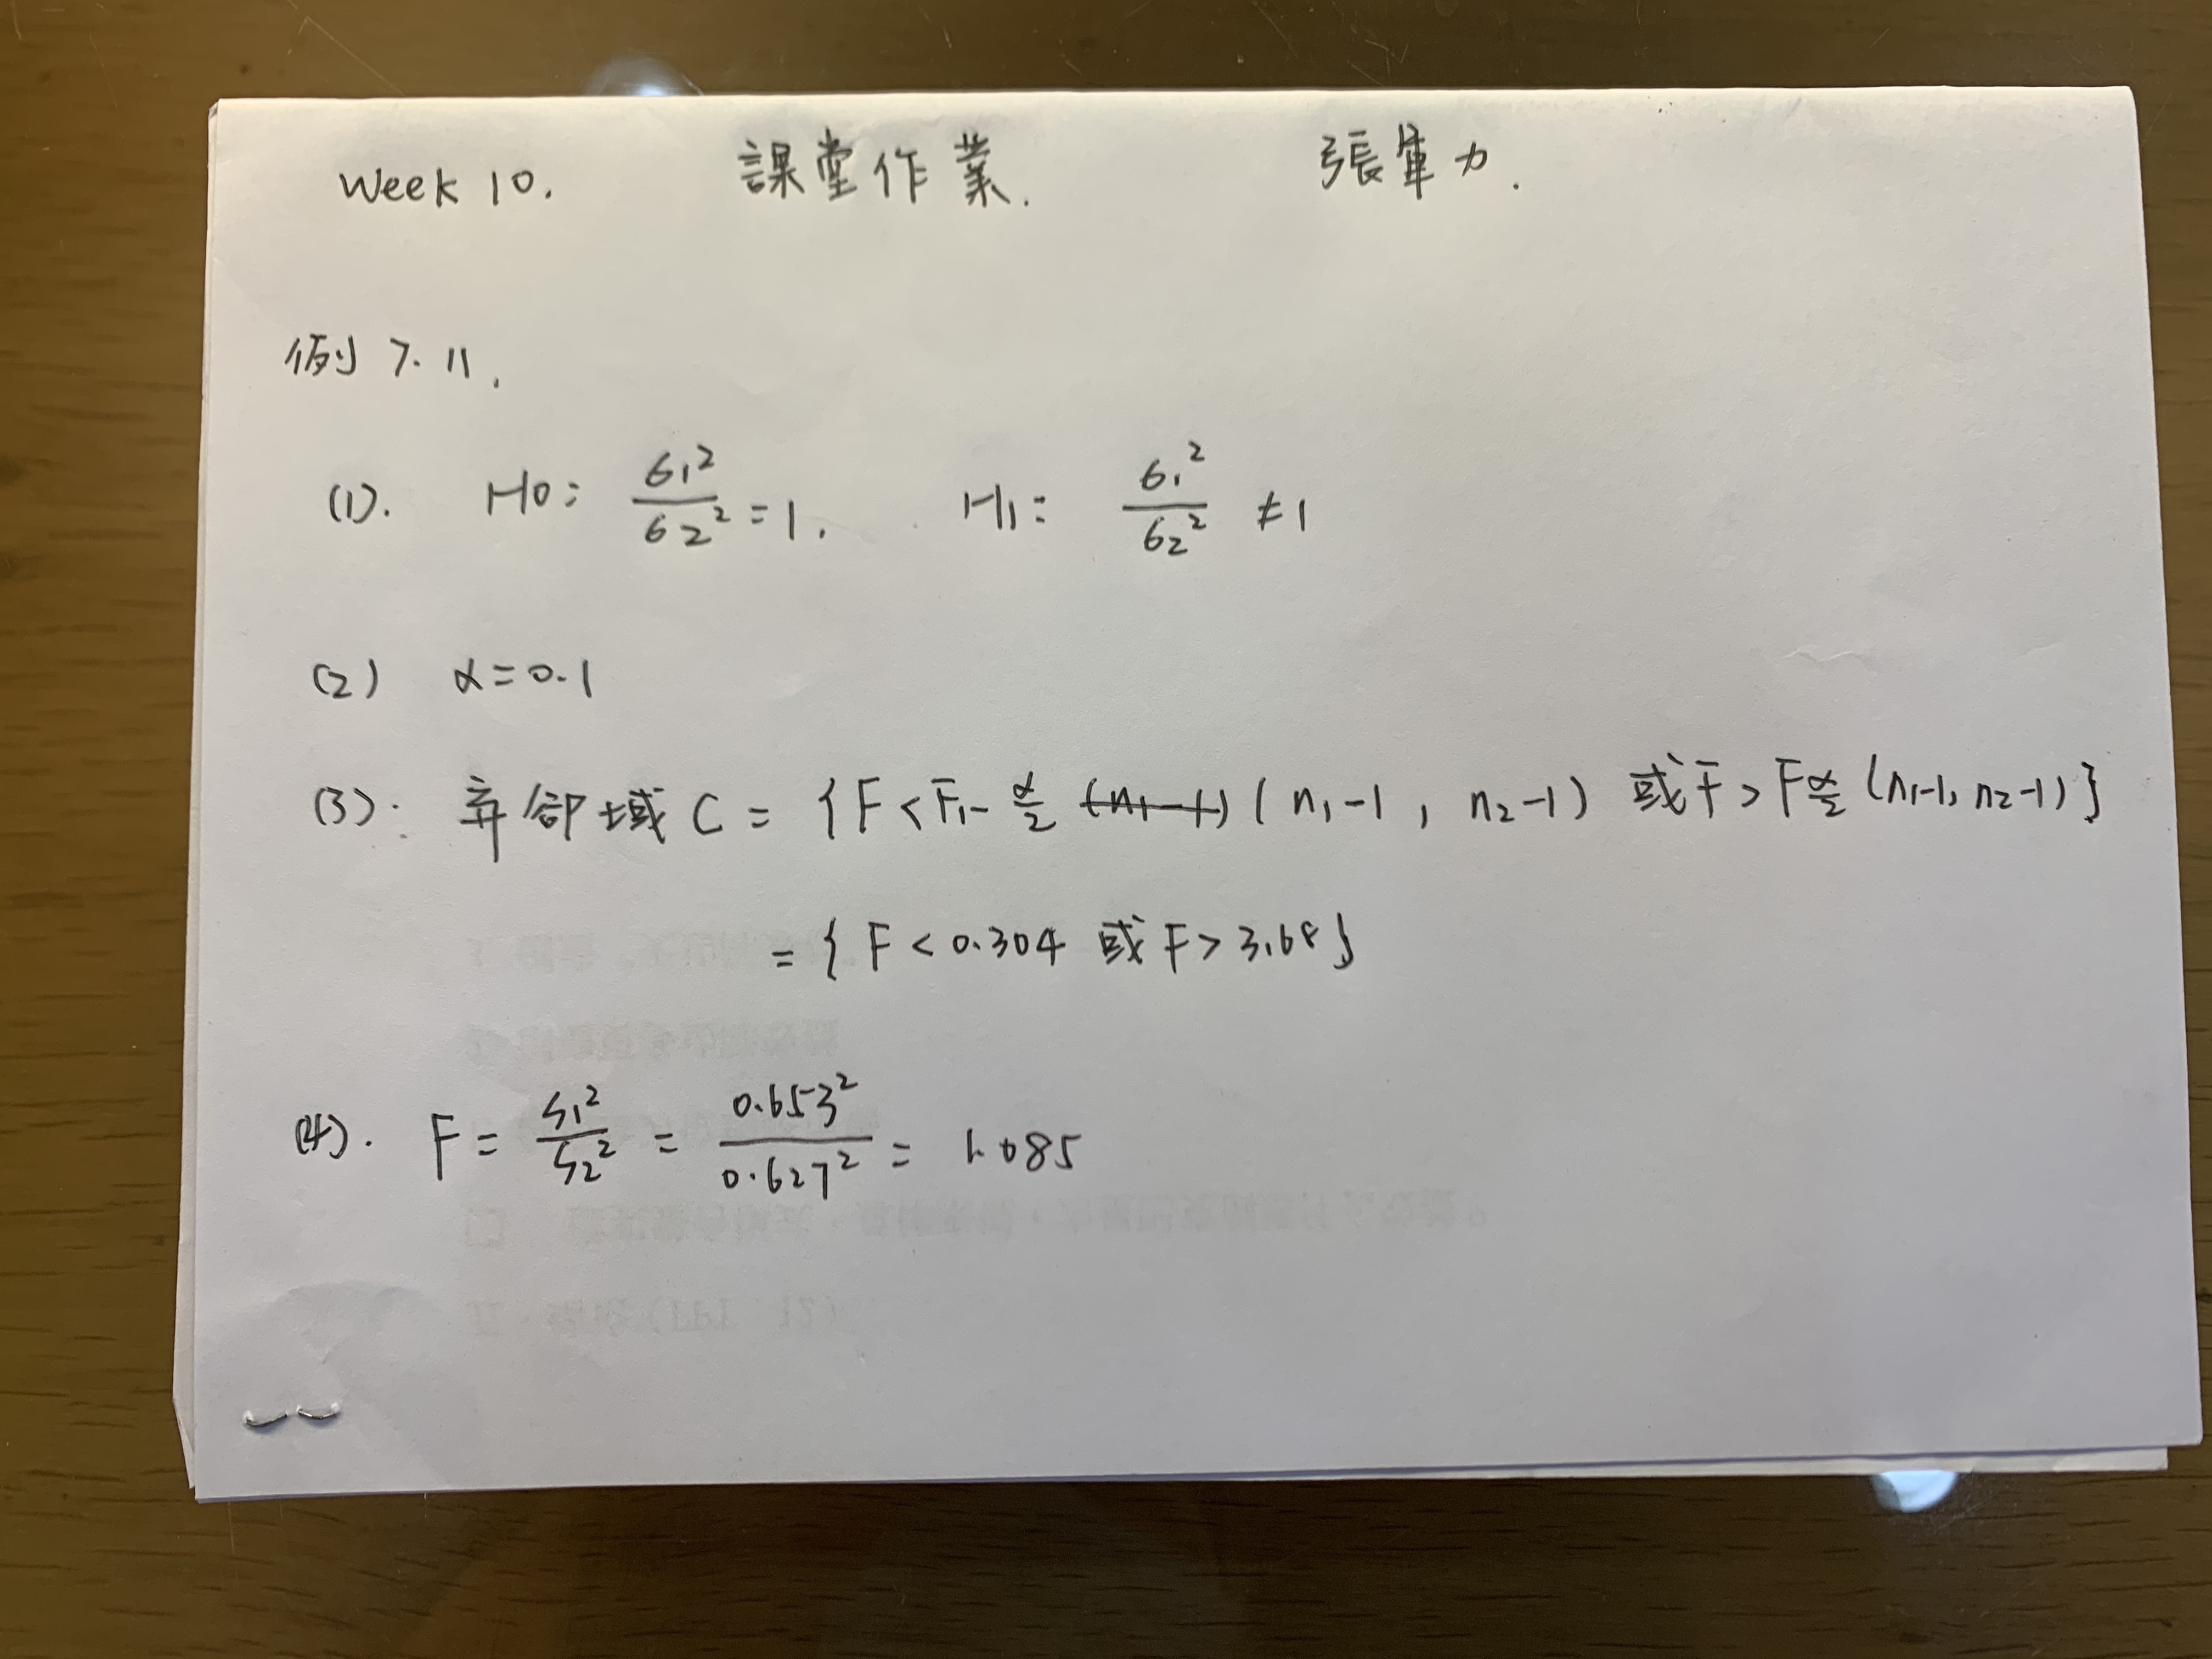 Week 10. 課堂作業. 張軍力.
例 7.11.
(1). H0: σ1²/σ2² = 1. H1: σ1²/σ2² ≠ 1
(2) α = 0.1
(3). 棄卻域 C = {F < F1-α/2 (n1-1, n2-1) 或 F > Fα/2 (n1-1, n2-1)}
= {F < 0.304 或 F > 3.68}
(4). F = S1²/S2² = 0.653²/0.627² = 1.085